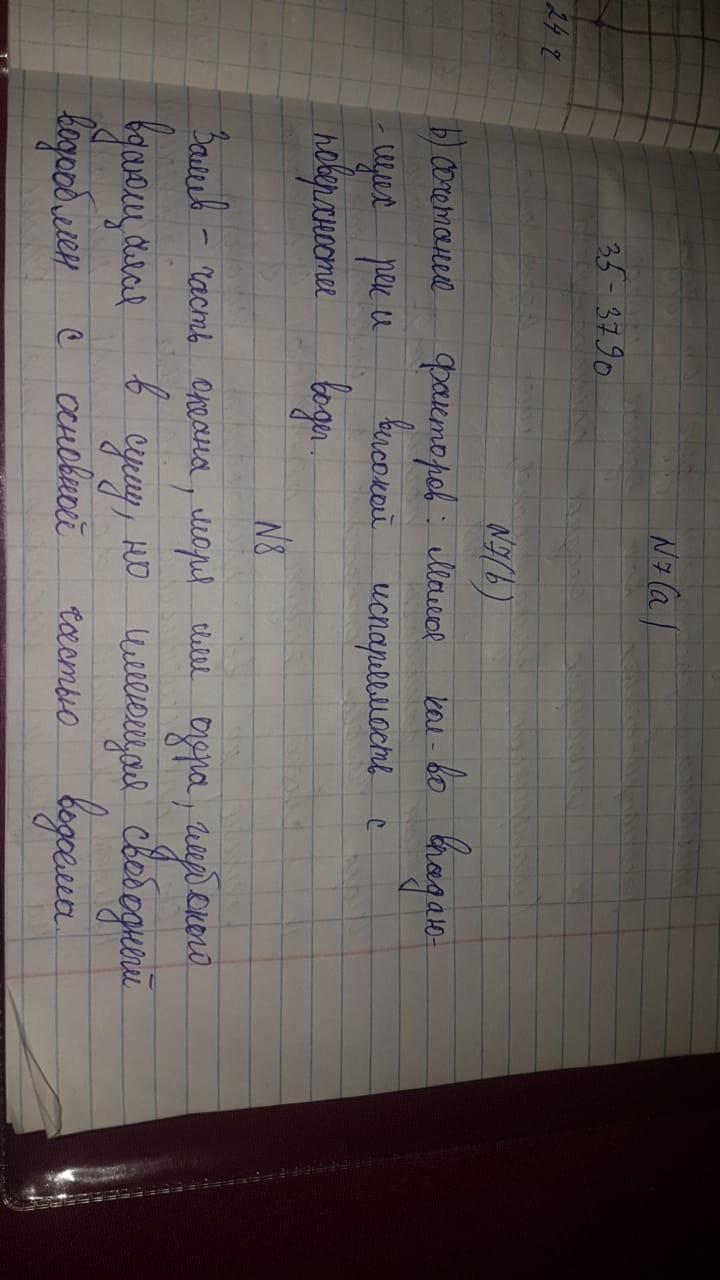 24 г
N7(а)
35-37%
N7(b)
b) сочетание факторов: малое кол-во впадаю-
-щих рек и высокой испаряемость с
поверхности воды.
N8
Залив - часть океана, моря или озера, глубокого
вдающаяся в сушу, но имеющая свободный
водообмен с основной частью водоема.